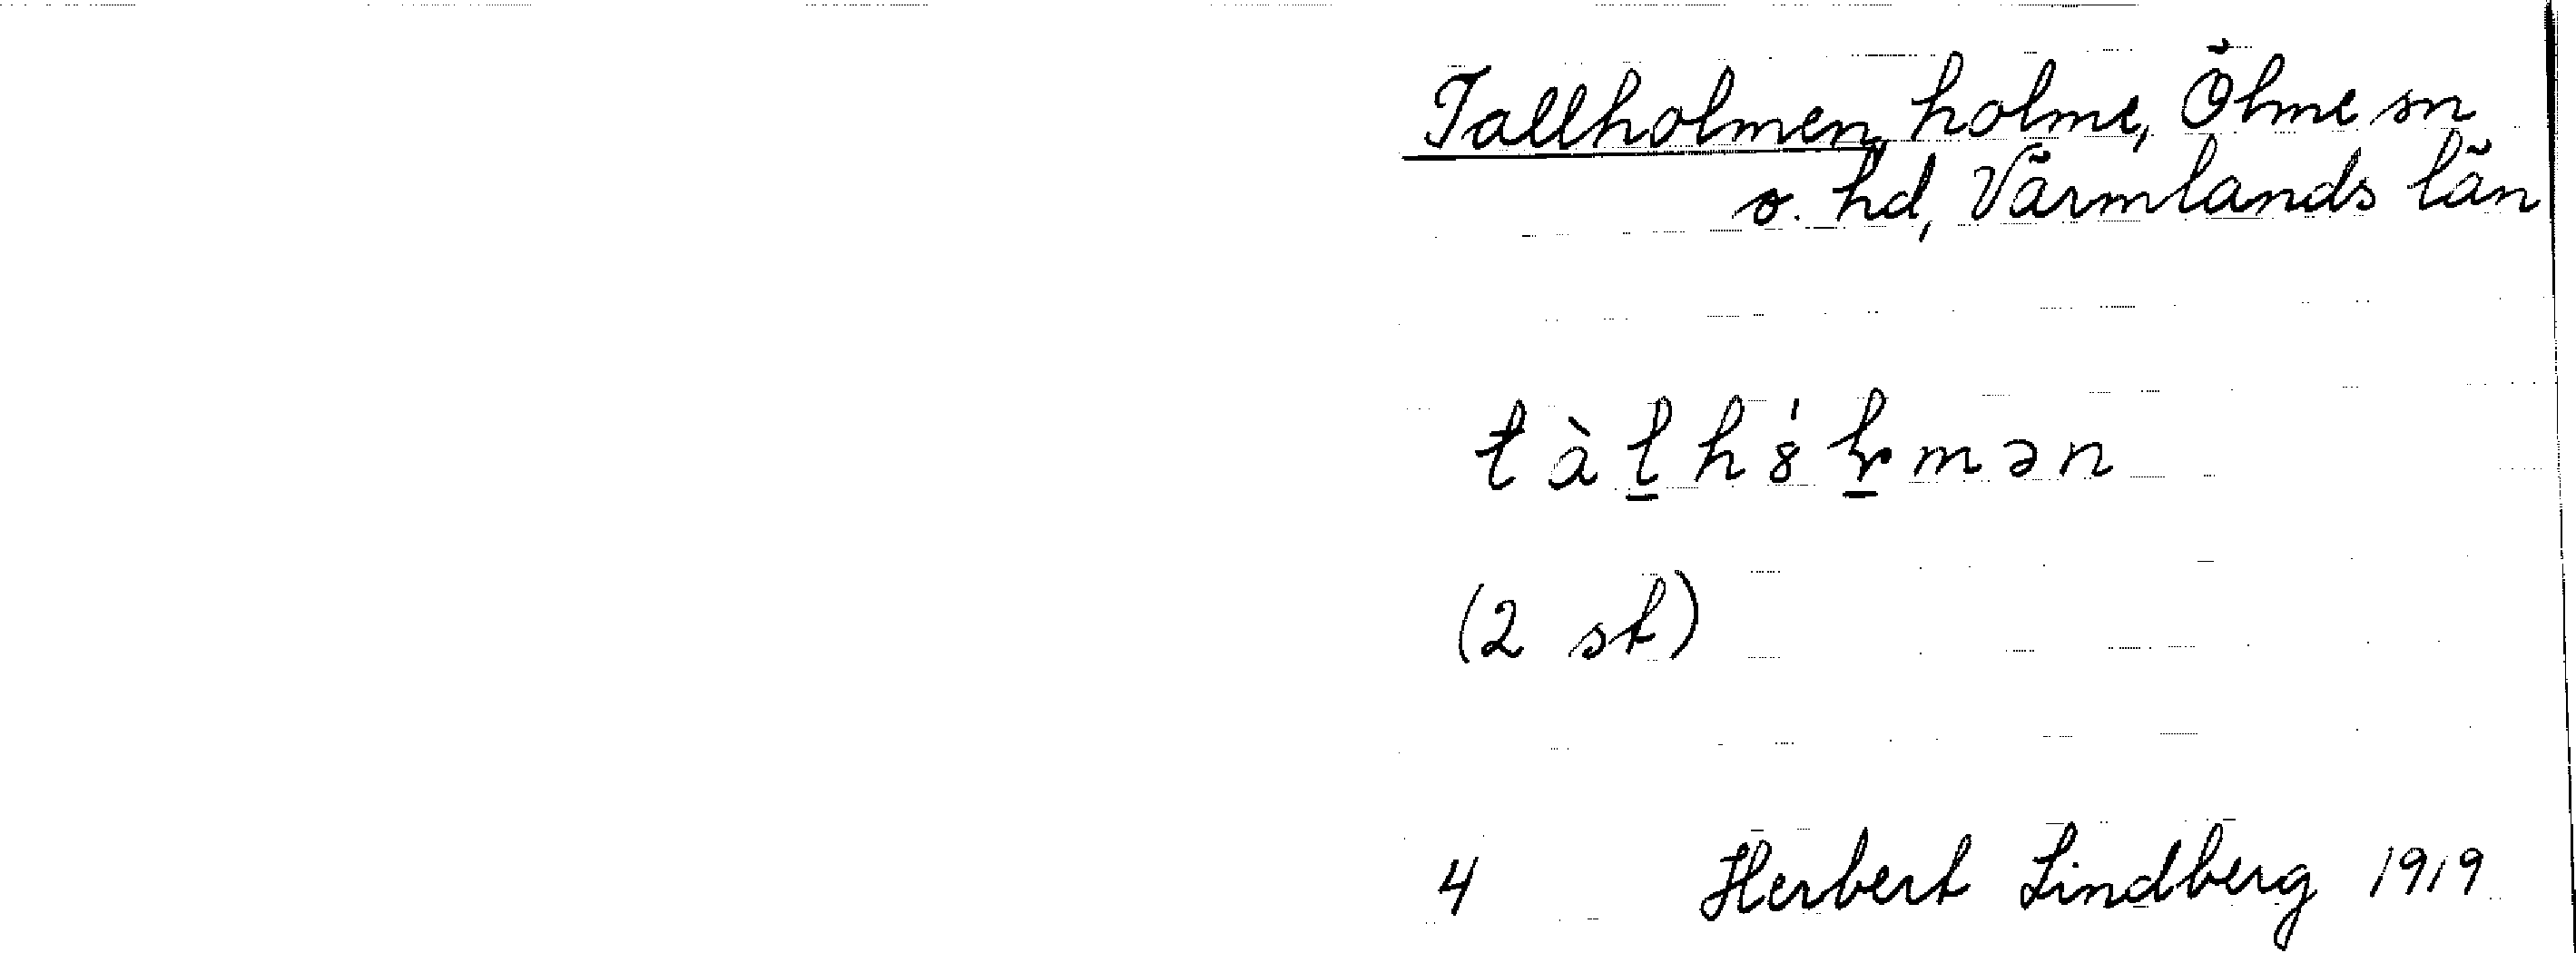 Tallholmen, holme, Ölme sn
o. hd, Värmlands län
tàl̲hó̍l̲mən
(2 st)
4 Herbert Lindberg 1919